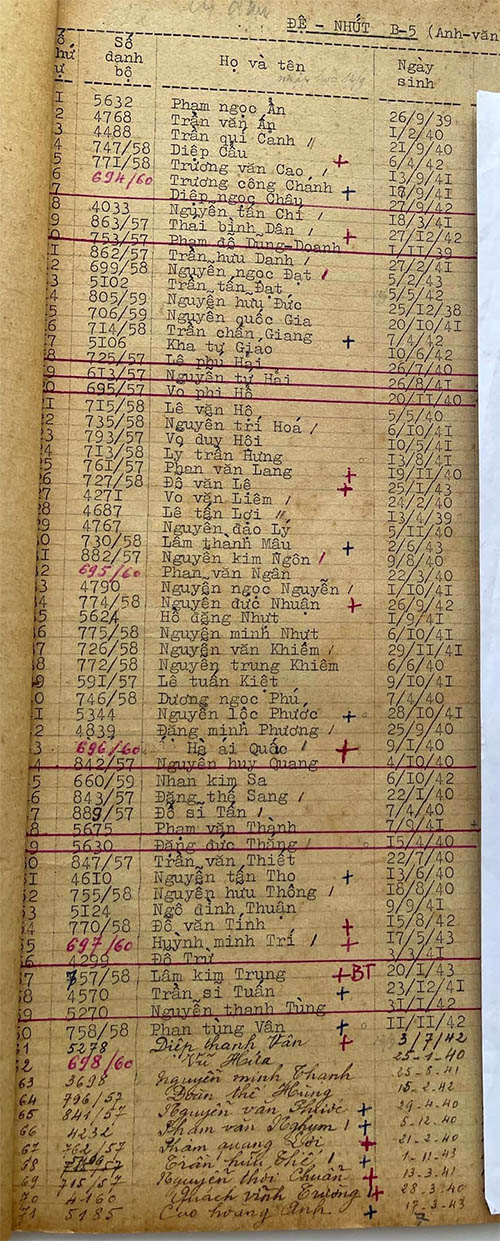 ĐỆ - NHỨT B-5 (Anh-văn
Số danh bộ Họ và tên Ngày sinh
1 5632 Phạm ngọc Ẩn 26/9/39
2 4768 Trần văn Ẩn 1/2/40
3 4488 Trần quí Cảnh 21/9/40
4 747/58 Diệp Cẩu 6/4/42
5 771/58 Trương văn Cao / + 13/9/41
6 694/60 Trương công Chánh + 17/9/41
7 Diệp ngọc Châu 27/9/42
8 4033 Nguyễn tấn Chi / 18/3/41
9 863/57 Thai bình Dân / + 27/12/42
0 753/57 Phạm đỗ Dung-Doanh 1/11/39
1 862/57 Trần hưu Danh / 27/2/41
2 699/58 Nguyễn ngọc Đạt / 5/2/43
3 5102 Trần tấn Đạt 5/5/42
4 805/59 Nguyễn hưu Đức 25/12/38
5 706/59 Nguyễn quốc Gia 20/10/41
6 714/58 Trần chấn Giang 7/4/42
7 5106 Kha tự Giao + 10/6/42
8 725/57 Lê phú Hai 26/7/40
9 613/57 Nguyễn tự Hải 26/8/41
0 695/57 Vo phi Hổ 20/11/40
1 715/58 Lê văn Hổ 5/5/40
2 735/58 Nguyễn trí Hoá / 6/10/41
3 793/57 Vo duy Hôi 10/5/41
4 713/58 Ly trần Hưng 13/8/41
5 761/57 Phan văn Lang + 19/11/40
6 727/58 Đỗ văn Lê + 25/1/43
7 4271 Vo văn Liêm / 24/2/40
8 4687 Lê tấn Lợi 13/4/39
9 4767 Nguyễn đạo Lý 5/11/40
0 730/58 Lâm thành Mâu + 2/6/43
1 882/57 Nguyễn kim Ngôn / 9/8/40
2 695/60 Phan văn Ngân 22/3/40
3 4790 Nguyễn ngọc Nguyễn / 1/10/41
4 774/58 Nguyễn đức Nhuận + 26/9/42
5 5624 Hồ đăng Nhựt 1/9/41
6 775/58 Nguyễn minh Nhựt 6/10/41
7 726/58 Nguyễn văn Khiêm / 29/11/41
8 772/58 Nguyễn trung Khiêm 6/6/40
9 591/57 Lê tuấn Kiệt 9/10/41
0 746/58 Dương ngọc Phú 7/4/40
1 5344 Nguyễn lộc Phước + 28/10/41
2 4839 Đặng minh Phương / 25/9/40
3 696/60 Hà ái Quốc / + 9/1/40
4 842/57 Nguyễn huy Quang 4/10/40
5 660/59 Nhan kim Sa 6/10/42
6 843/57 Đặng thế Sang / 22/1/40
7 889/57 Đỗ sĩ Tấn / 7/4/40
8 5675 Phạm văn Thành 7/9/41
9 5630 Đặng đức Thắng / 15/4/40
0 847/57 Trần văn Thiết 22/7/40
1 4610 Nguyễn tấn Thọ + 13/6/40
2 755/58 Nguyễn hưu Thông / 18/8/40
3 5124 Ngô đình Thuận 9/9/41
4 770/58 Đỗ văn Tính + 15/8/42
5 697/60 Huỳnh minh Trí / + 17/5/43
6 4299 Đỗ Trư 3/3/41
7 757/58 Lâm kim Trung + BT 20/1/43
8 4570 Trần sĩ Tuấn + 23/12/41
9 5270 Nguyễn thanh Tùng 31/1/42
0 758/58 Phan tùng Vân + 11/11/42
1 5278 Diệp thanh Vân + 3/7/42
2 698/60 Vũ Hứa 25-1-40
63 3698 Nguyễn minh Thanh 25-8-41
64 796/57 Đoàn thế Hùng 15-2-42
65 841/57 Nguyễn văn Phước + 29-4-40
66 4232 Phạm văn Nghym / + 5-12-40
67 762/57 Phạm quang Lợi + 21-2-40
68 Trần hưu Thế / + 1-11-43
69 715/57 Nguyễn thới Chuẩn + 13-3-41
70 4160 Quách vĩnh Trương / + 28-3-40
71 5185 Cao hoàng Anh + 17-2-43